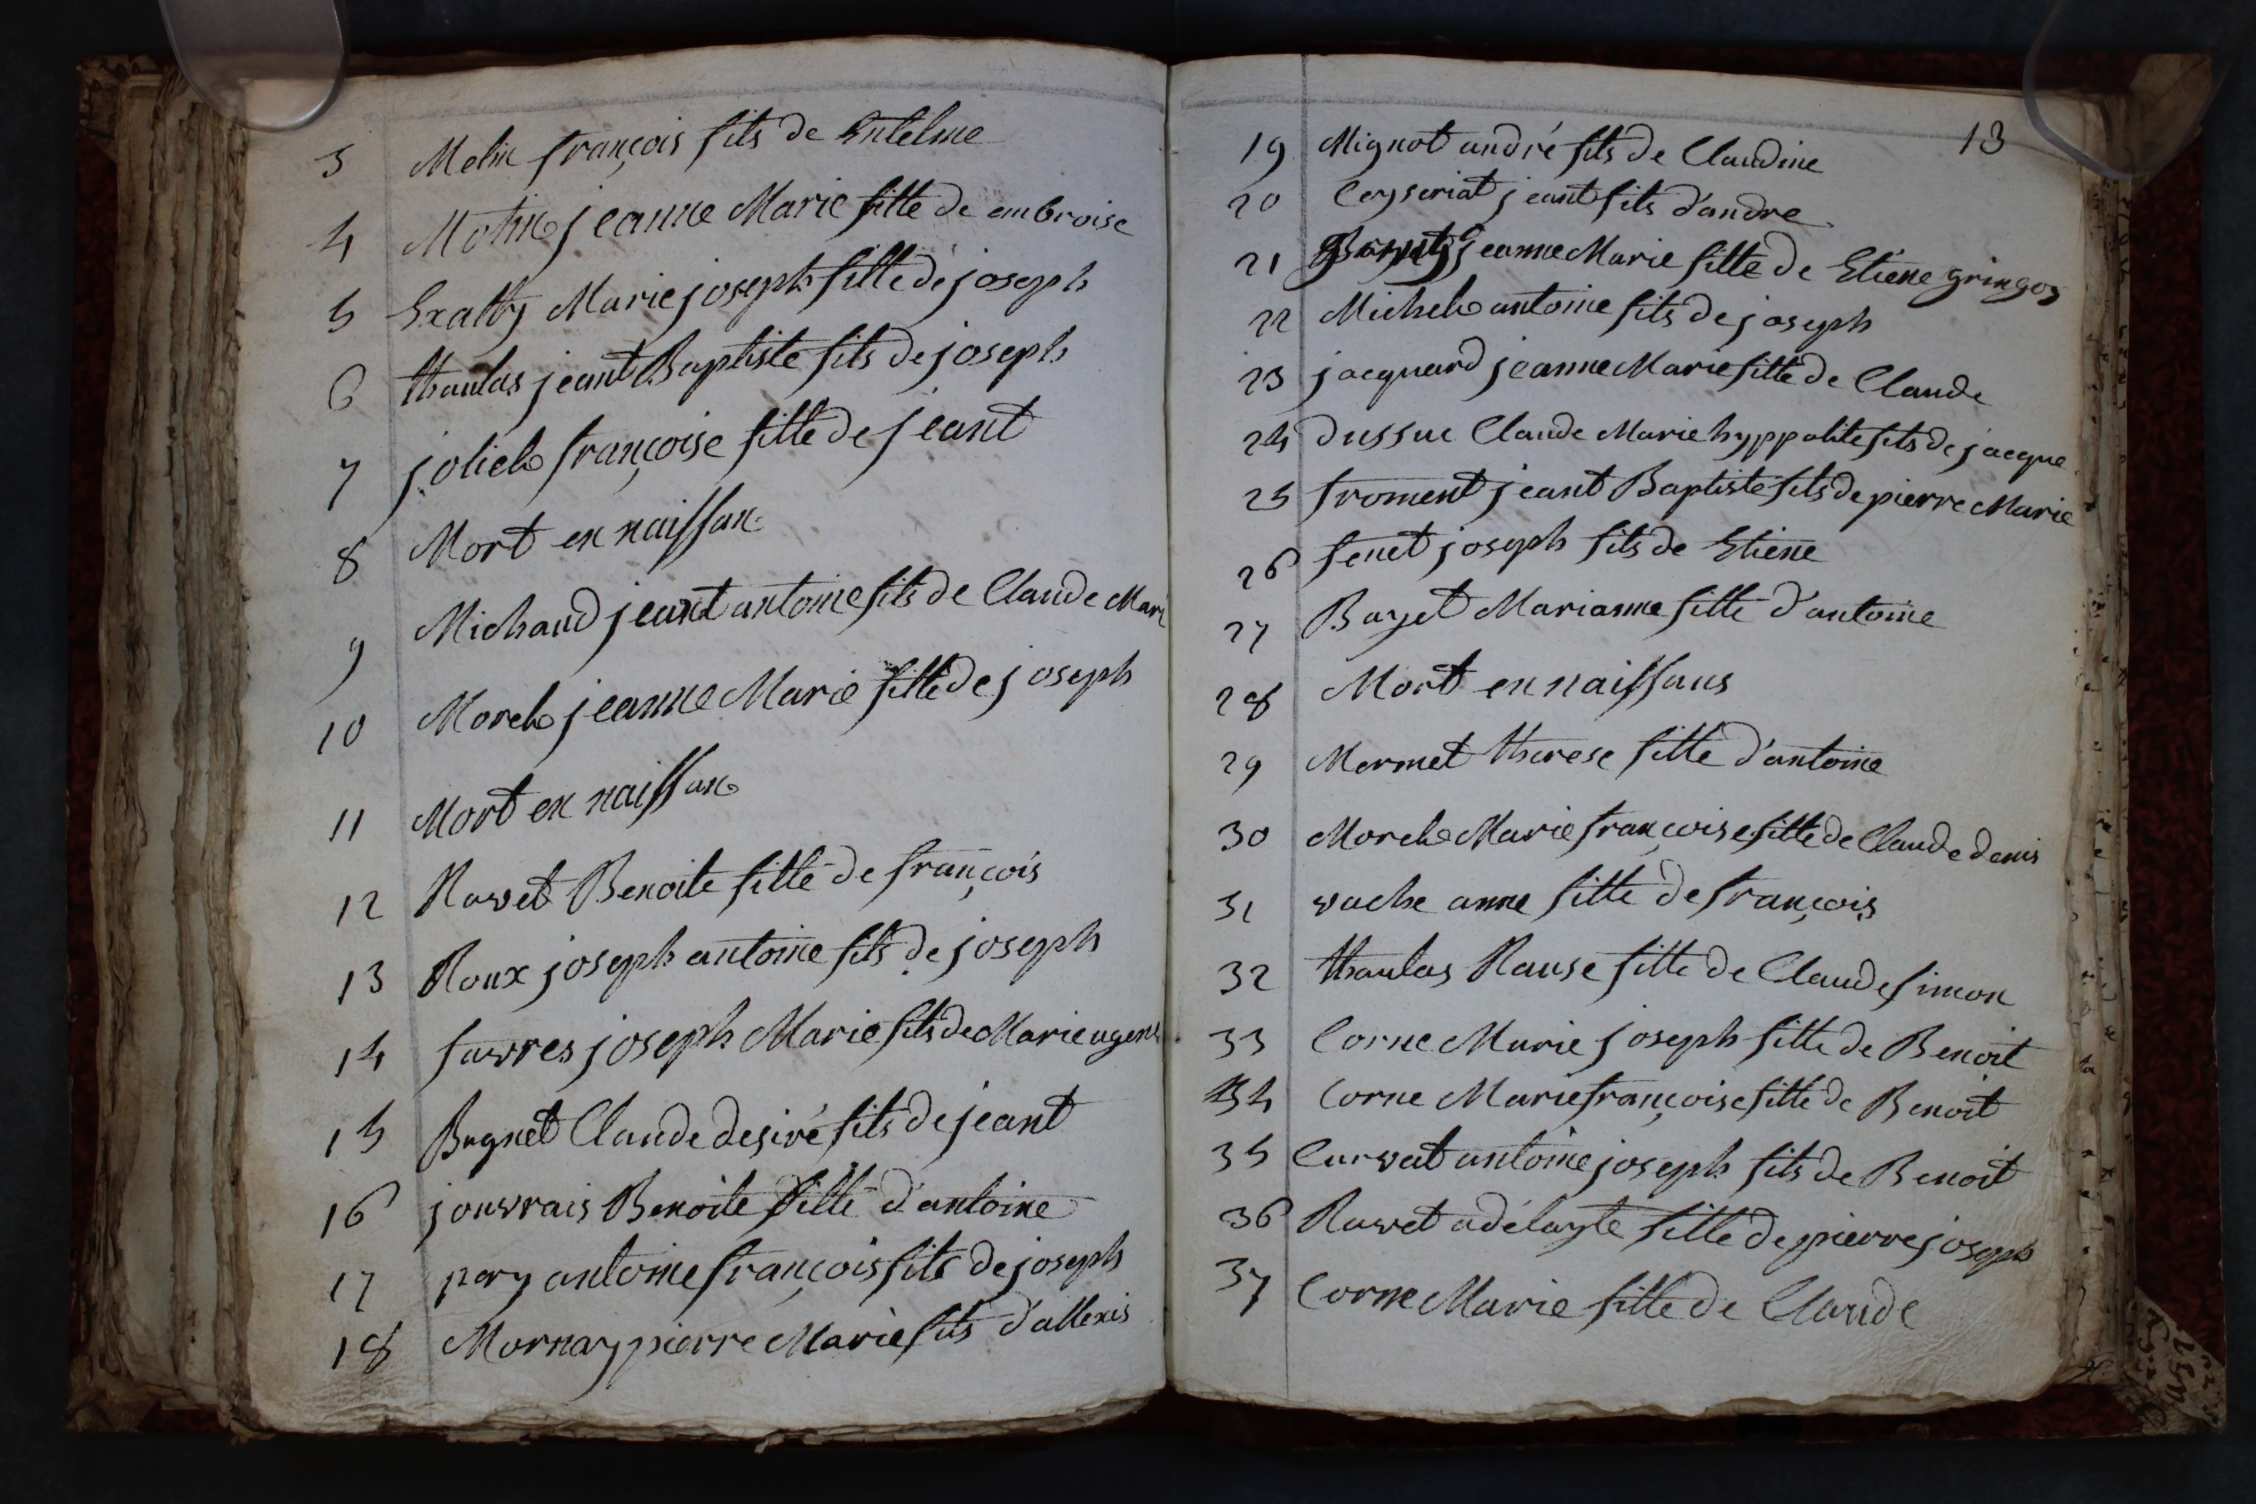 3 Melin françois fils de Entelme
4 Motin jeanne Marie fille de embroise
5 Exatty Marie joseph fille de joseph
6 thaulas jeant Baptiste fils de joseph
7 joliet françoise fille de jeant
8 Mort en naissan
9 Michaud jeant antoine fils de Claude Mari
10 Morel jeanne Marie fille de joseph
11 Mort en naissan
12 Ravet Benoite fille de françois
13 Roux joseph antoine fils de joseph
14 favres joseph Marie fils de Marie
15 Bugnet Claude desiré fils de jeant
16 jouvrais Benoite fille d'antoine
17 pery antoine françois fils de joseph
18 Mornay pierre Marie fils d'allexis
13
19 Mignot andré fils de Claudine
20 Ceyseriat jeant fils d'andre
21 jeanne Marie fille de Etiene gringoz
22 Michel antoine fils de joseph
23 jacquard jeanne Marie fille de Claude
24 dussuc Claude Marie hyppolite fils de jacque
25 froment jeant Baptiste fils de pierre Marie
26 fenet joseph fils de Etiene
27 Bayet Marianne fille d'antoine
28 Mort en naissans
29 Mermet therese fille d'antoine
30 Morel Marie françoise fille de Claude denis
31 vache anne fille de françois
32 thaulas Rause fille de Claude simon
33 Corne Marie joseph fille de Benoit
34 Corne Marie françoise fille de Benoit
35 Curvat antoine joseph fils de Benoit
36 Ravet adélayte fille de pierre joseph
37 Corne Marie fille de Claude